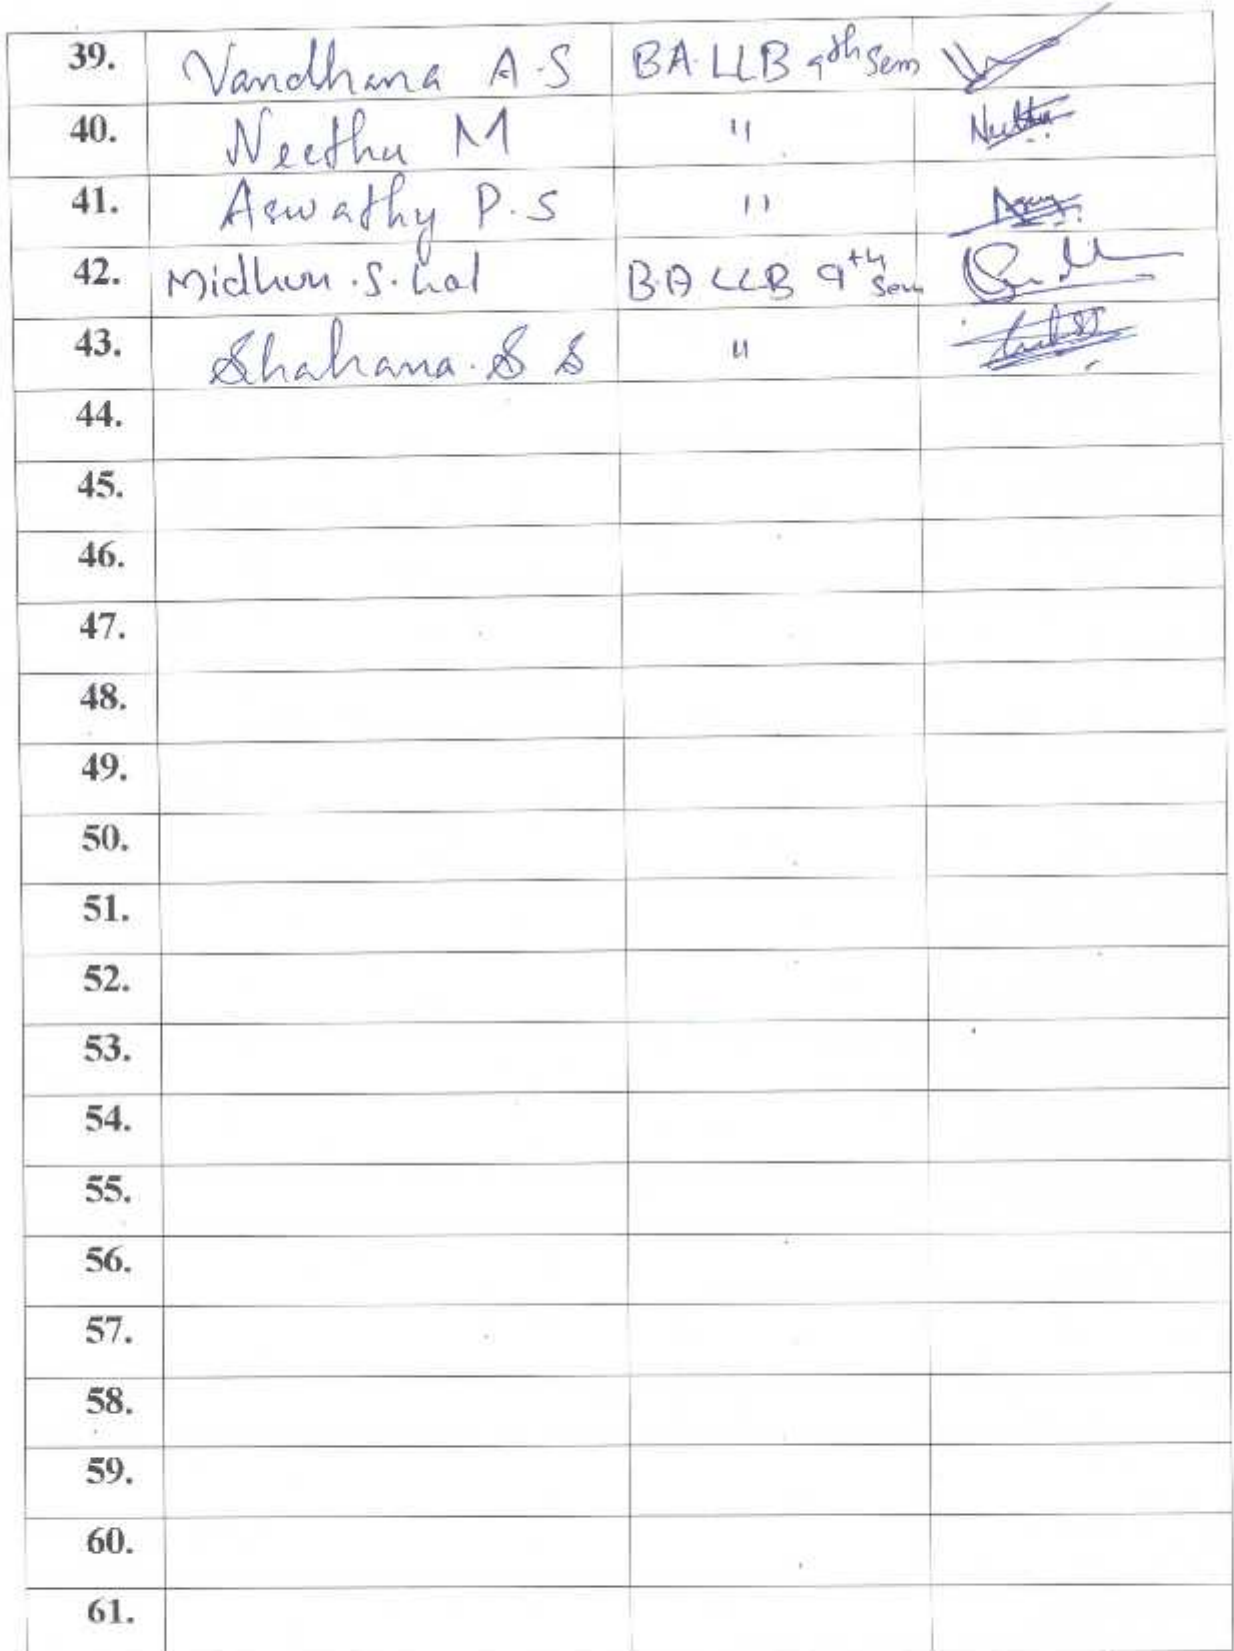 39. Vandhana A.S BA.LLB 9th Sem
40. Neethu M " Neethu
41. Aswathy P.S "
42. Midhun.S.Lal BA LLB 9th Sem
43. Shahana.S S "
44.
45.
46.
47.
48.
49.
50.
51.
52.
53.
54.
55.
56.
57.
58.
59.
60.
61.